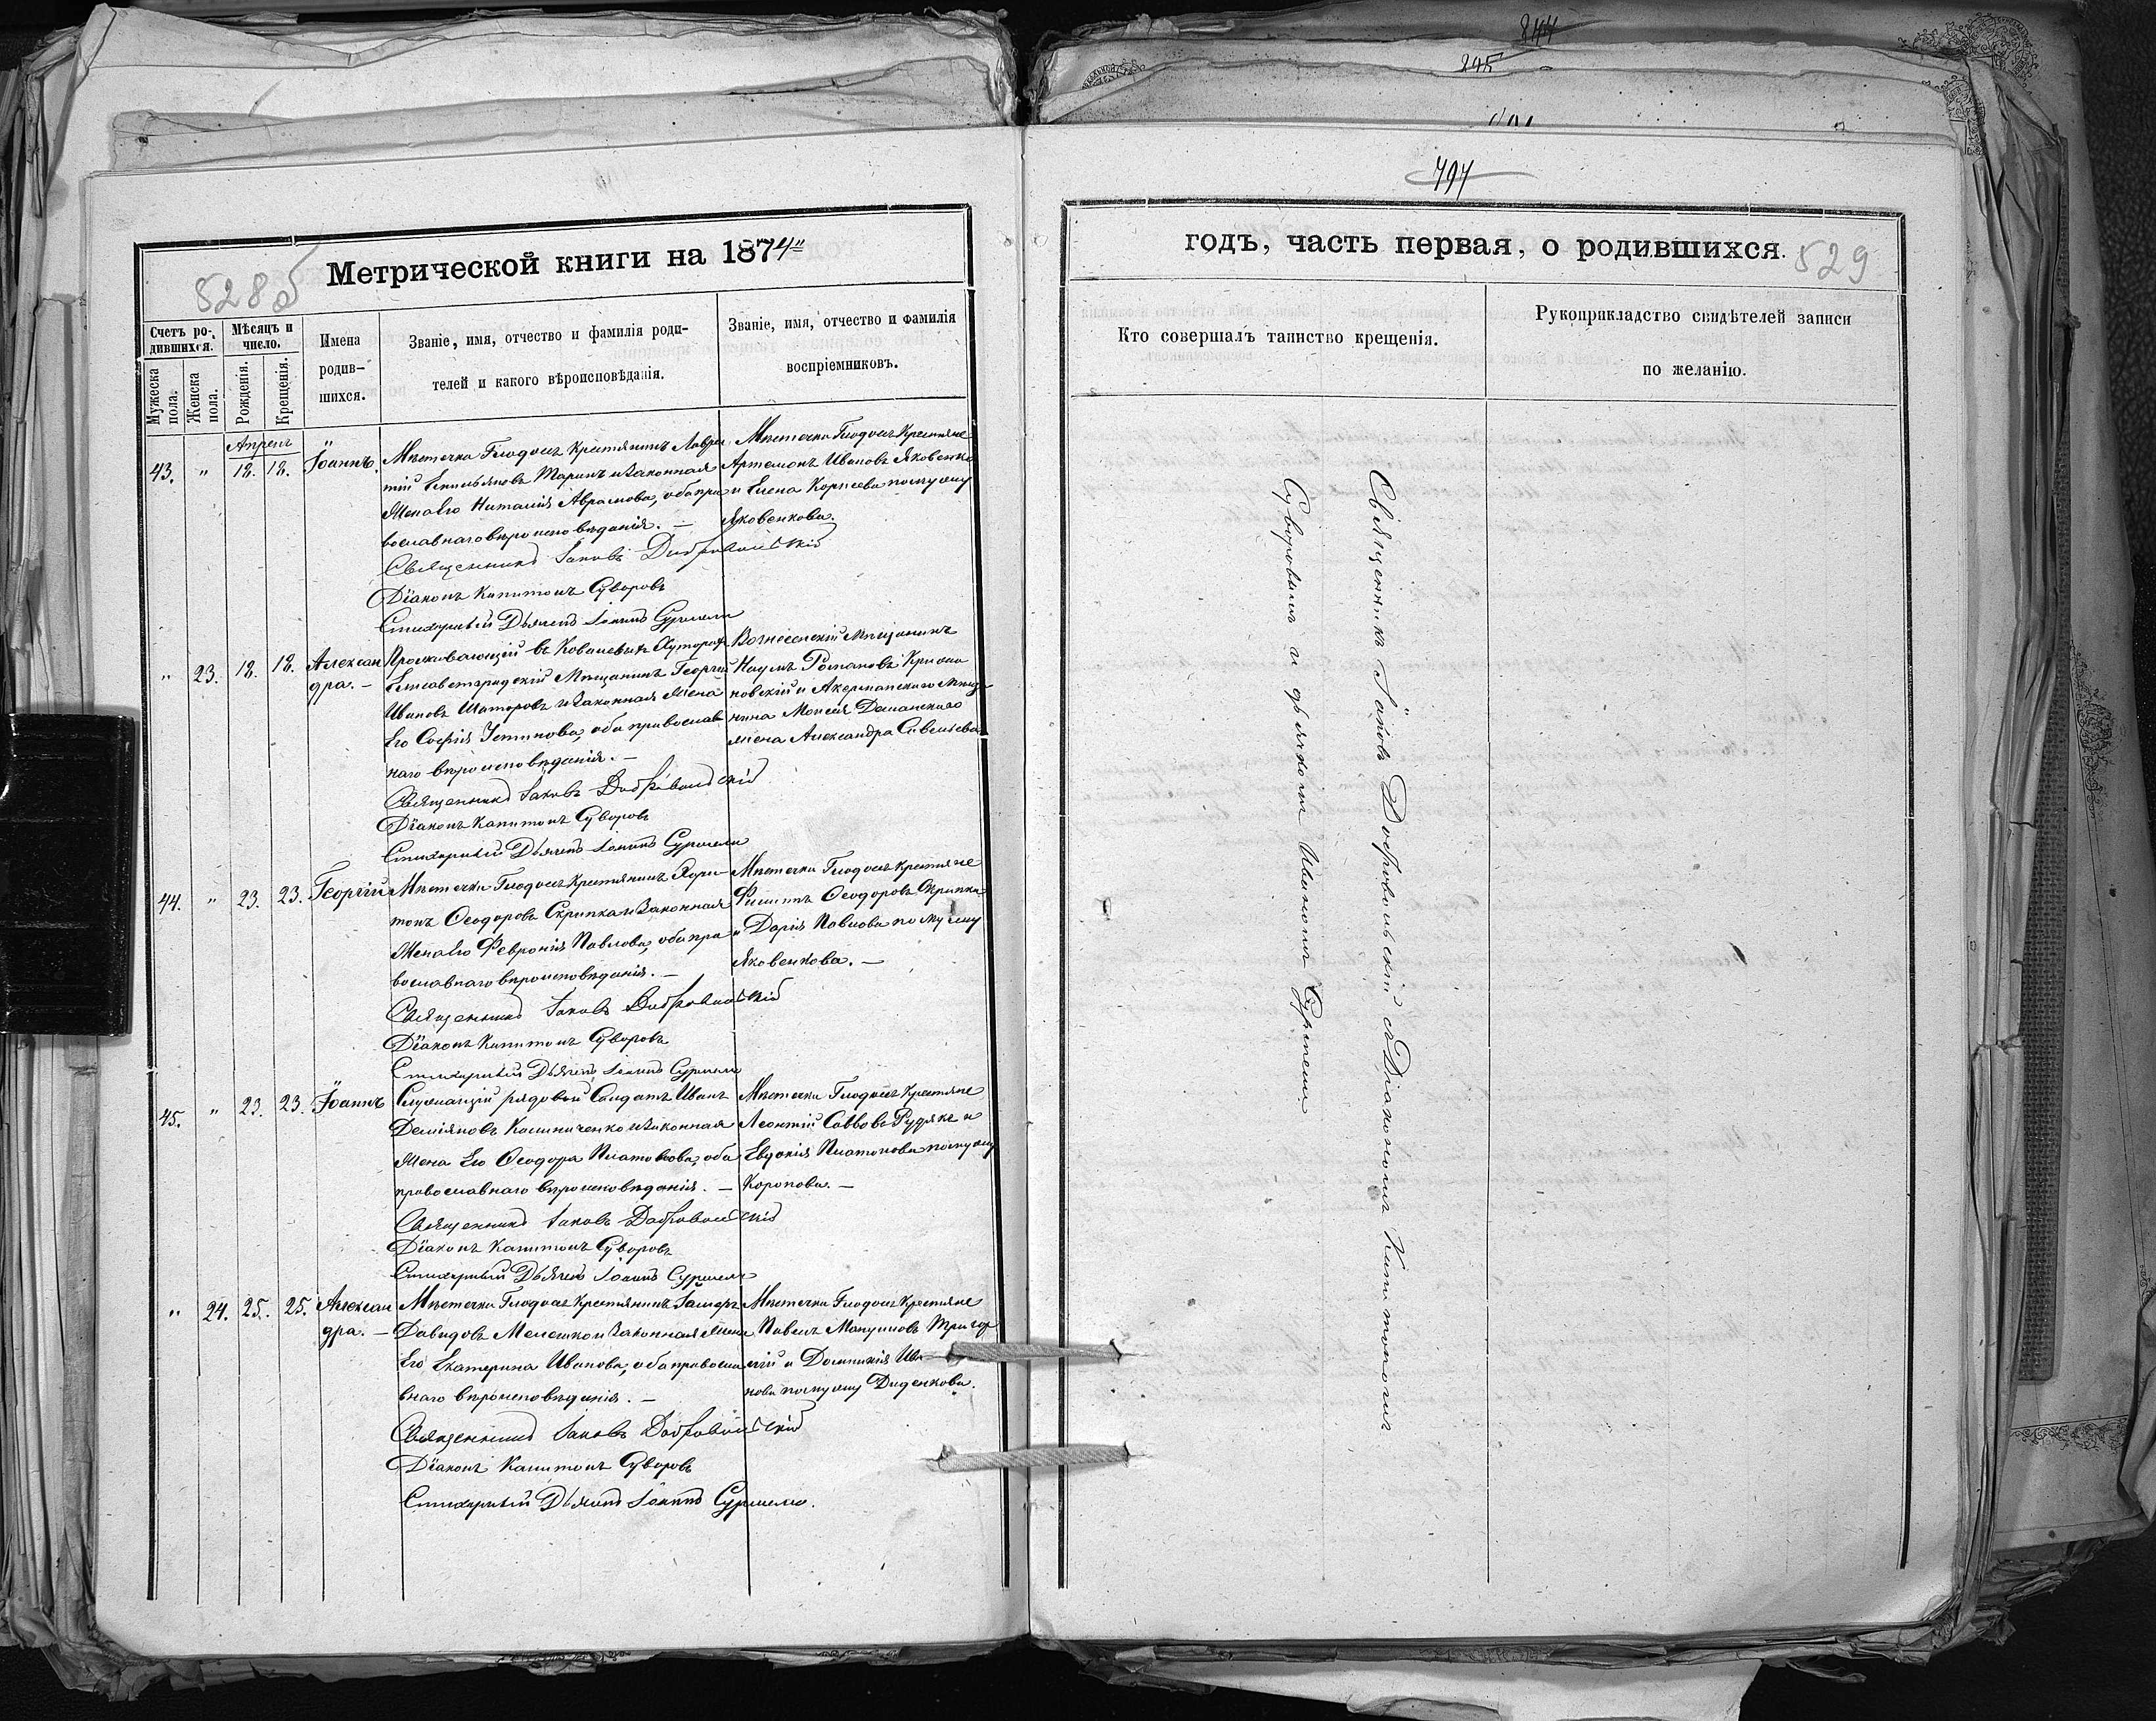 244
245
528 б
Метрической книги на 1874"
Счетъ ро-
дившихся.
Мужеска пола.
Женска пола.
Мѣсяцъ и
число.
Рожденія.
Крещенія.
Имена
родив-
шихся.
Званіе, имя, отчество и фамилія роди-
телей и какого вѣроисповѣданія.
Званіе, имя, отчество и фамилія
воспріемниковъ.
Апрель
43. " 18. 18. Іоаннъ.
Мѣстечка Глодосъ Крестьянинъ Лавре-
тій Емильяновъ Таринъ и Законная
Жена Его Наталія Авраамова, оба пра-
вославнаго вѣроисповѣданія. —
Мѣстечка Глодосъ Крестьяне
Артемонъ Ивановъ Яковенко
и Елена Корнеева по мужу
Яковенкова.
Священникъ Іаковъ Добровольскій
Діаконъ Капитонъ Суворовъ
Стихарный Дьячекъ Іоаннъ
" 23. 18. 18. Алексан
дра. —
Проживающій въ Ковалевыхъ Хуторахъ
Елисаветградскій Мѣщанинъ Георгій
Ивановъ Шаторовъ и Законная Жена
Его Софія Устинова, оба православ
наго вѣроисповѣданія. —
Вознесенскій Мѣщанинъ
Наумъ Романовъ
новскій и Акерманскаго Мѣща-
нина Моисея
жена Александра Савельева
Священникъ Іаковъ Добровольскій
Діаконъ Капитонъ Суворовъ
Стихарный Дьячекъ Іоаннъ
44. " 23. 23. Георгій
Мѣстечка Глодосъ Крестьянинъ Хари-
тонъ Ѳеодоровъ Скрипка и Законная
Жена Его Февронія Павлова, оба пра
вославнаго вѣроисповѣданія. —
Мѣстечка Глодосъ Крестьяне
Филиппъ Ѳеодоровъ Скрипка
и Дарія Павлова по мужу
Яковенкова. —
Священникъ Іаковъ Добровольскій
Діаконъ Капитонъ Суворовъ
Стихарный Дьячекъ Іоаннъ
45. " 23. 23. Іоаннъ
Служащій рядовой Солдатъ Иванъ
Деміяновъ Калиниченко и Законная
Жена Его Ѳеодора Платонова, оба
православнаго вѣроисповѣданія. —
Мѣстечка Глодосъ Крестьяне
Леонтій Саввовъ Рудякъ и
Евдокія Платонова по мужу
Коропова. —
Священникъ Іаковъ Добровольскій
Діаконъ Капитонъ Суворовъ
Стихарный Дьячекъ Іоаннъ
" 24. 25. 25. Алексан
дра. —
Мѣстечка Глодосъ Крестьянинъ
Давидовъ Мелешко и Законная Жена
Его Екатерина Иванова, оба правосла
внаго вѣроисповѣданія. —
Мѣстечка Глодосъ Крестьяне
Павелъ
и Домникія Ива
нова по мужу Диденкова.
Священникъ Іаковъ Добровольскій
Діаконъ Капитонъ Суворовъ
Стихарный Дьячекъ Іоаннъ
годъ, часть первая, о родившихся.
529
Кто совершалъ таинство крещенія.
Рукоприкладство свидѣтелей записи
по желанію.
Священникъ Іаковъ Добровольскій съ Діакономъ Капитономъ
Суворовымъ и дьячкомъ Иваномъ